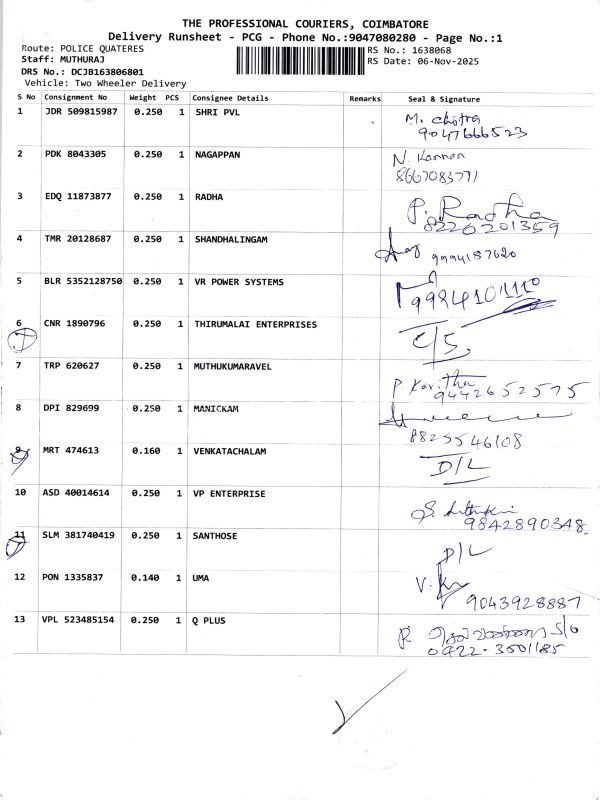 THE PROFESSIONAL COURIERS, COIMBATORE
Delivery Runsheet - PCG - Phone No.:9047080280 - Page No.:1
Route: POLICE QUATERES RS No.: 1638068
Staff: MUTHURAJ RS Date: 06-Nov-2025
DRS No.: DCJB163806801
Vehicle: Two Wheeler Delivery
S No Consignment No Weight PCS Consignee Details Remarks Seal & Signature
1 JDR 509815987 0.250 1 SHRI PVL M. Chitra
9047666523
2 PDK 8043305 0.250 1 NAGAPPAN N. Kannan
8667083771
3 EDQ 11873877 0.250 1 RADHA P. Radha
8226201359
4 TMR 20128687 0.250 1 SHANDHALINGAM
9994187620
5 BLR 5352128750 0.250 1 VR POWER SYSTEMS
9984101110
6 CNR 1890796 0.250 1 THIRUMALAI ENTERPRISES C/S
7 TRP 620627 0.250 1 MUTHUKUMARAVEL P. Kavitha
9442652575
8 DPI 829699 0.250 1 MANICKAM
8825546108
9 MRT 474613 0.160 1 VENKATACHALAM D/L
10 ASD 40014614 0.250 1 VP ENTERPRISE
9842890348
11 SLM 381740419 0.250 1 SANTHOSE D/L
12 PON 1335837 0.140 1 UMA V.
9043928887
13 VPL 523485154 0.250 1 Q PLUS P. S/o
0422-3501185